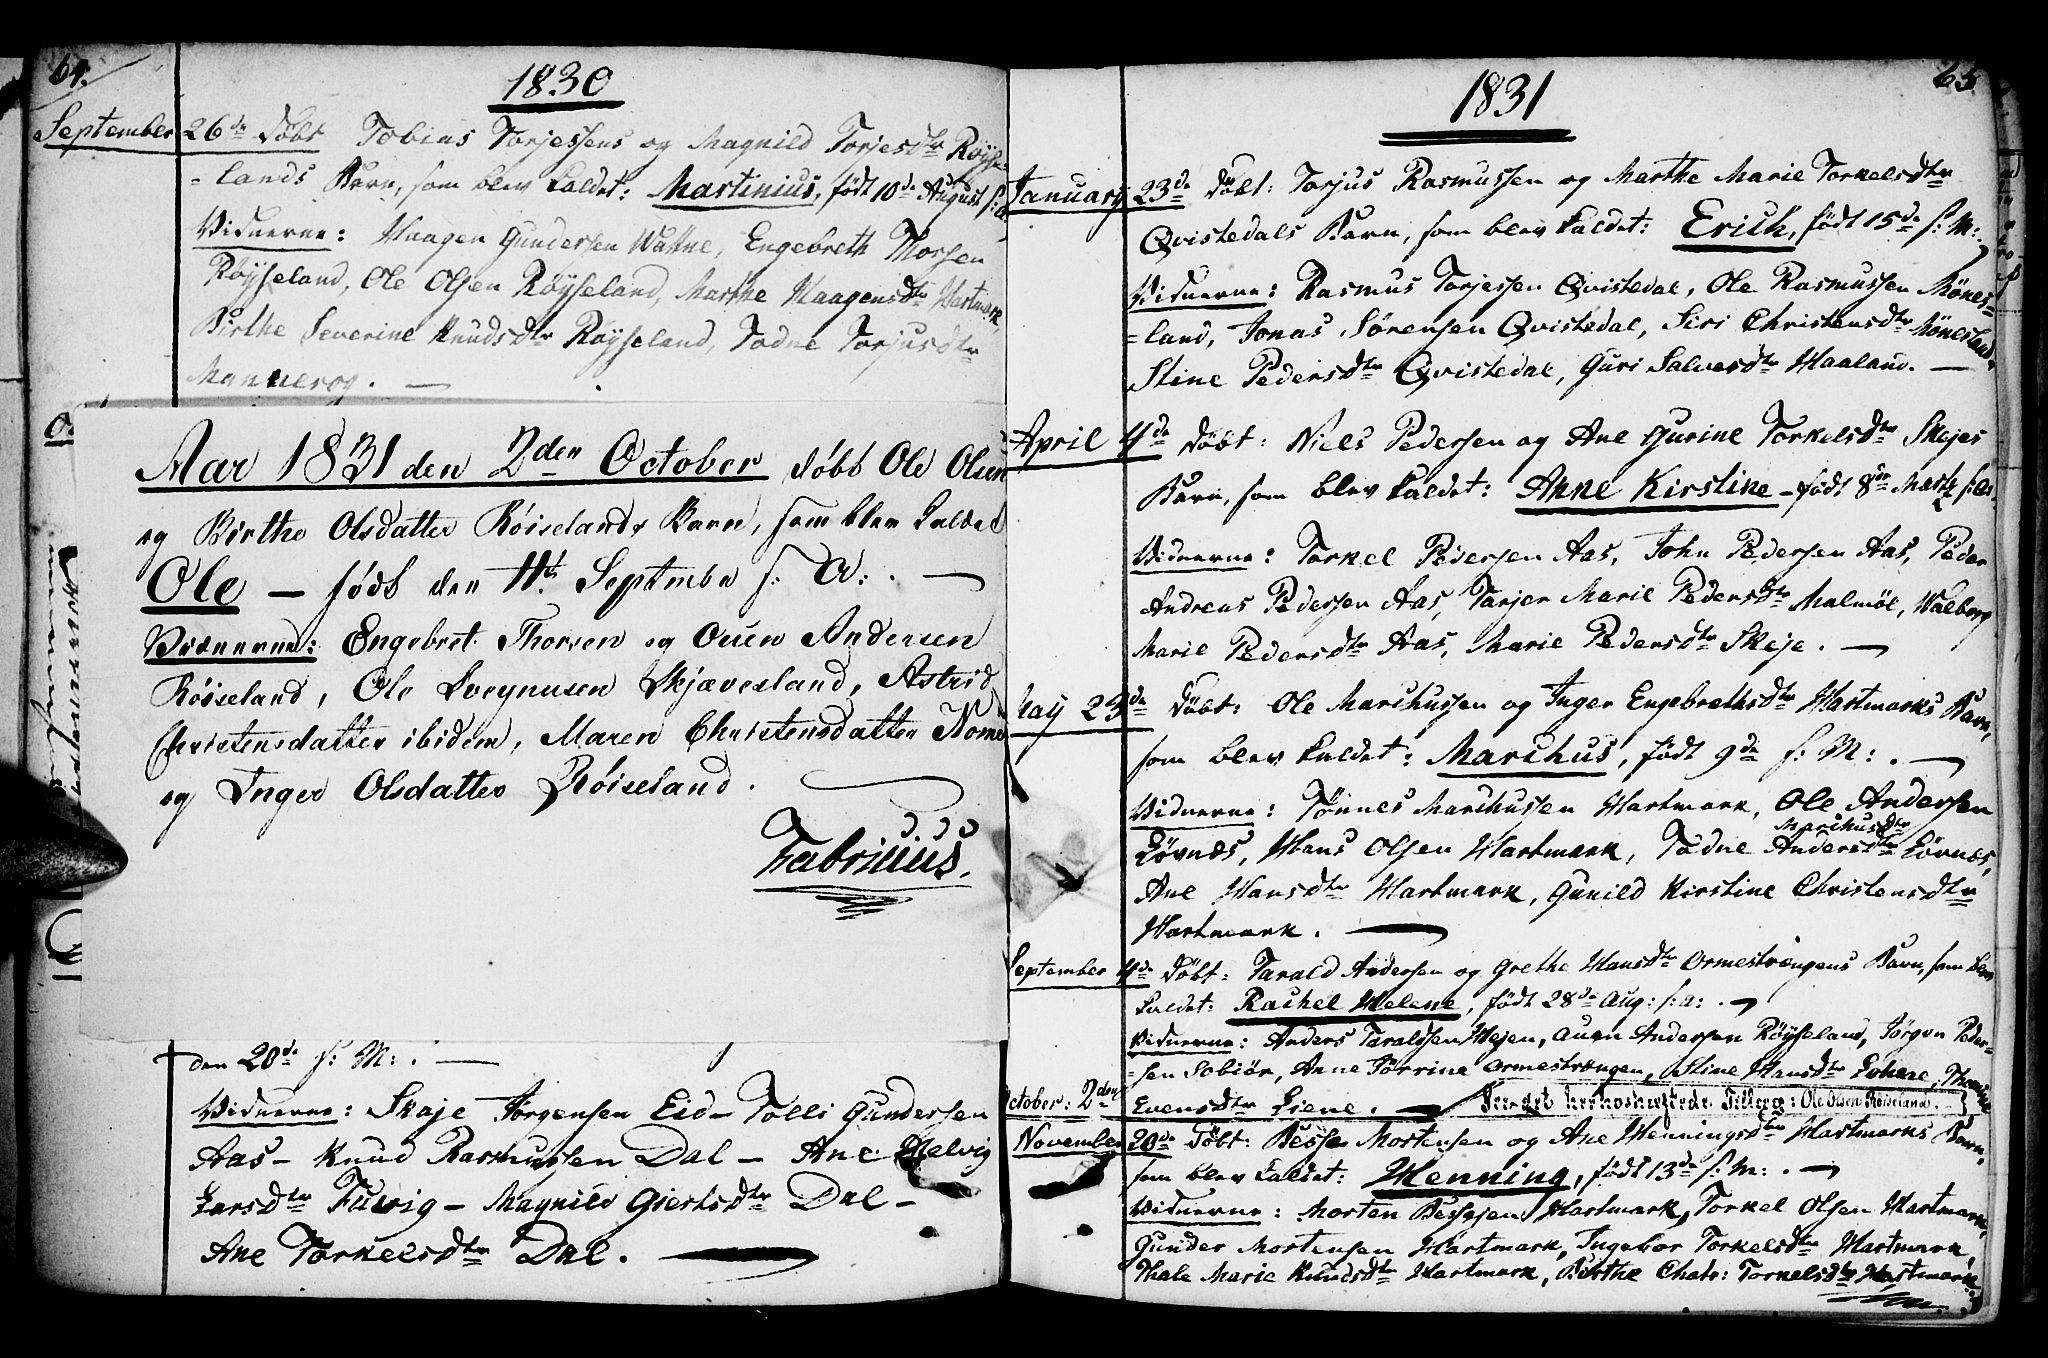 64.
1830
September 26de Döbt Tobias Torjessens og Magnild Torjesdtr Röyse-
-lands Barn, som blev kaldet: Martinius, födt 10de August s: a:
Vidnerne: Haagen Gundersen Watne, Engebreth Thorsen
Röyseland, Ole Olsen Röyseland, Marthe Haagensdtr Hartmark,
Birthe Severine Knudsdtr Röyseland, Todne Torjusdtr
Mannerog. —
Aar 1831 den 2den October döbt Ole Olsen
og Birthe Olsdatter Röiselands Barn, som blev kaldet
Ole — födt den 11te September s: A: . —
Vidnerne: Engebret Thorsen og Ouen Andersen
Röiseland, Ole Svegnusen Skjævesland, Astrid
Christensdatter ibidem, Maren Christensdatter Nome
og Inger Olsdatter Röiseland.
Fabricius.
den 20de s: M: . —
Vidnerne: Skaje Jörgensen Eid – Tolli Gundersen
Aas – Knud Rasmussen Dal – Ane Helvig
Larsdtr Fuvig – Magnild Giertsdtr Dal –
Ane Torkelsdtr Dal. —
65
1831
January 23de Döbt: Torjus Rasmussen og Marthe Marie Torkelsdtr
Qvistedals Barn, som blev kaldet: Erich, födt 15de s: M: .
Vidnerne: Rasmus Torjessen Qvistedal, Ole Rasmussen Mönes-
-land, Jonas Sörensen Qvistedal, Siri Christensdtr Mönesland,
Stine Pedersdtr Qvistedal, Guri Salvesdtr Haaland. —
April 4de Döbt: Niels Pedersen og Ane Gurine Torkelsdtr Skejes
Barn, som blev kaldet: Anne Kirstine – födt 8de Martz s: a:
Vidnerne: Torkel Pedersen Aas, John Pedersen Aas, Peder
Andreas Pedersen Aas, Tarjer Marie Pedersdtr Malmöe, Walborg
Marie Pedersdtr Aas, Marie Pedersdtr Skeje. —
May 23de Döbt: Ole Marchussen og Inger Engebrethsdtr Hartmarks Barn,
som blev kaldet: Marchus, födt 9de s: M: . —
Vidnerne: Tönnes Marchussen Hartmark, Ole Andersen
Lövnæs, Hans Olsen Hartmark, Todne Andersdtr Marchusdtr Lövnæs,
Ane Hansdtr Hartmark, Gunild Kirstine Christensdtr
Hartmark. —
September 4de Döbt: Tarald Andersen og Grethe Hansdtr Ormestrængens Barn, som blev
kaldet: Rachel Helene, födt 28de Aug: s: a: . —
Vidnerne: Anders Taraldsen Hejen, Auen Andersen Röyseland, Jörgen Peder-
-sen Sobiör, Anne Törrine Ormestrængen, Stine Hansdtr
Evensdtr Liene. —
October: 2den Tilleg: Ole Olsen Röiseland.
November 20de Döbt: Besse Mortensen og Ane Henningsdtr Hartmarks Barn,
som blev kaldet: Henning, födt 13de s: M: . —
Vidnerne: Morten Bessesen Hartmark, Torkel Olsen Hartmark,
Gunder Mortensen Hartmark, Ingebor Torkelsdtr Hartmark,
Thale Marie Knudsdtr Hartmark, Birthe Chatr: Torkelsdtr Hartmark.